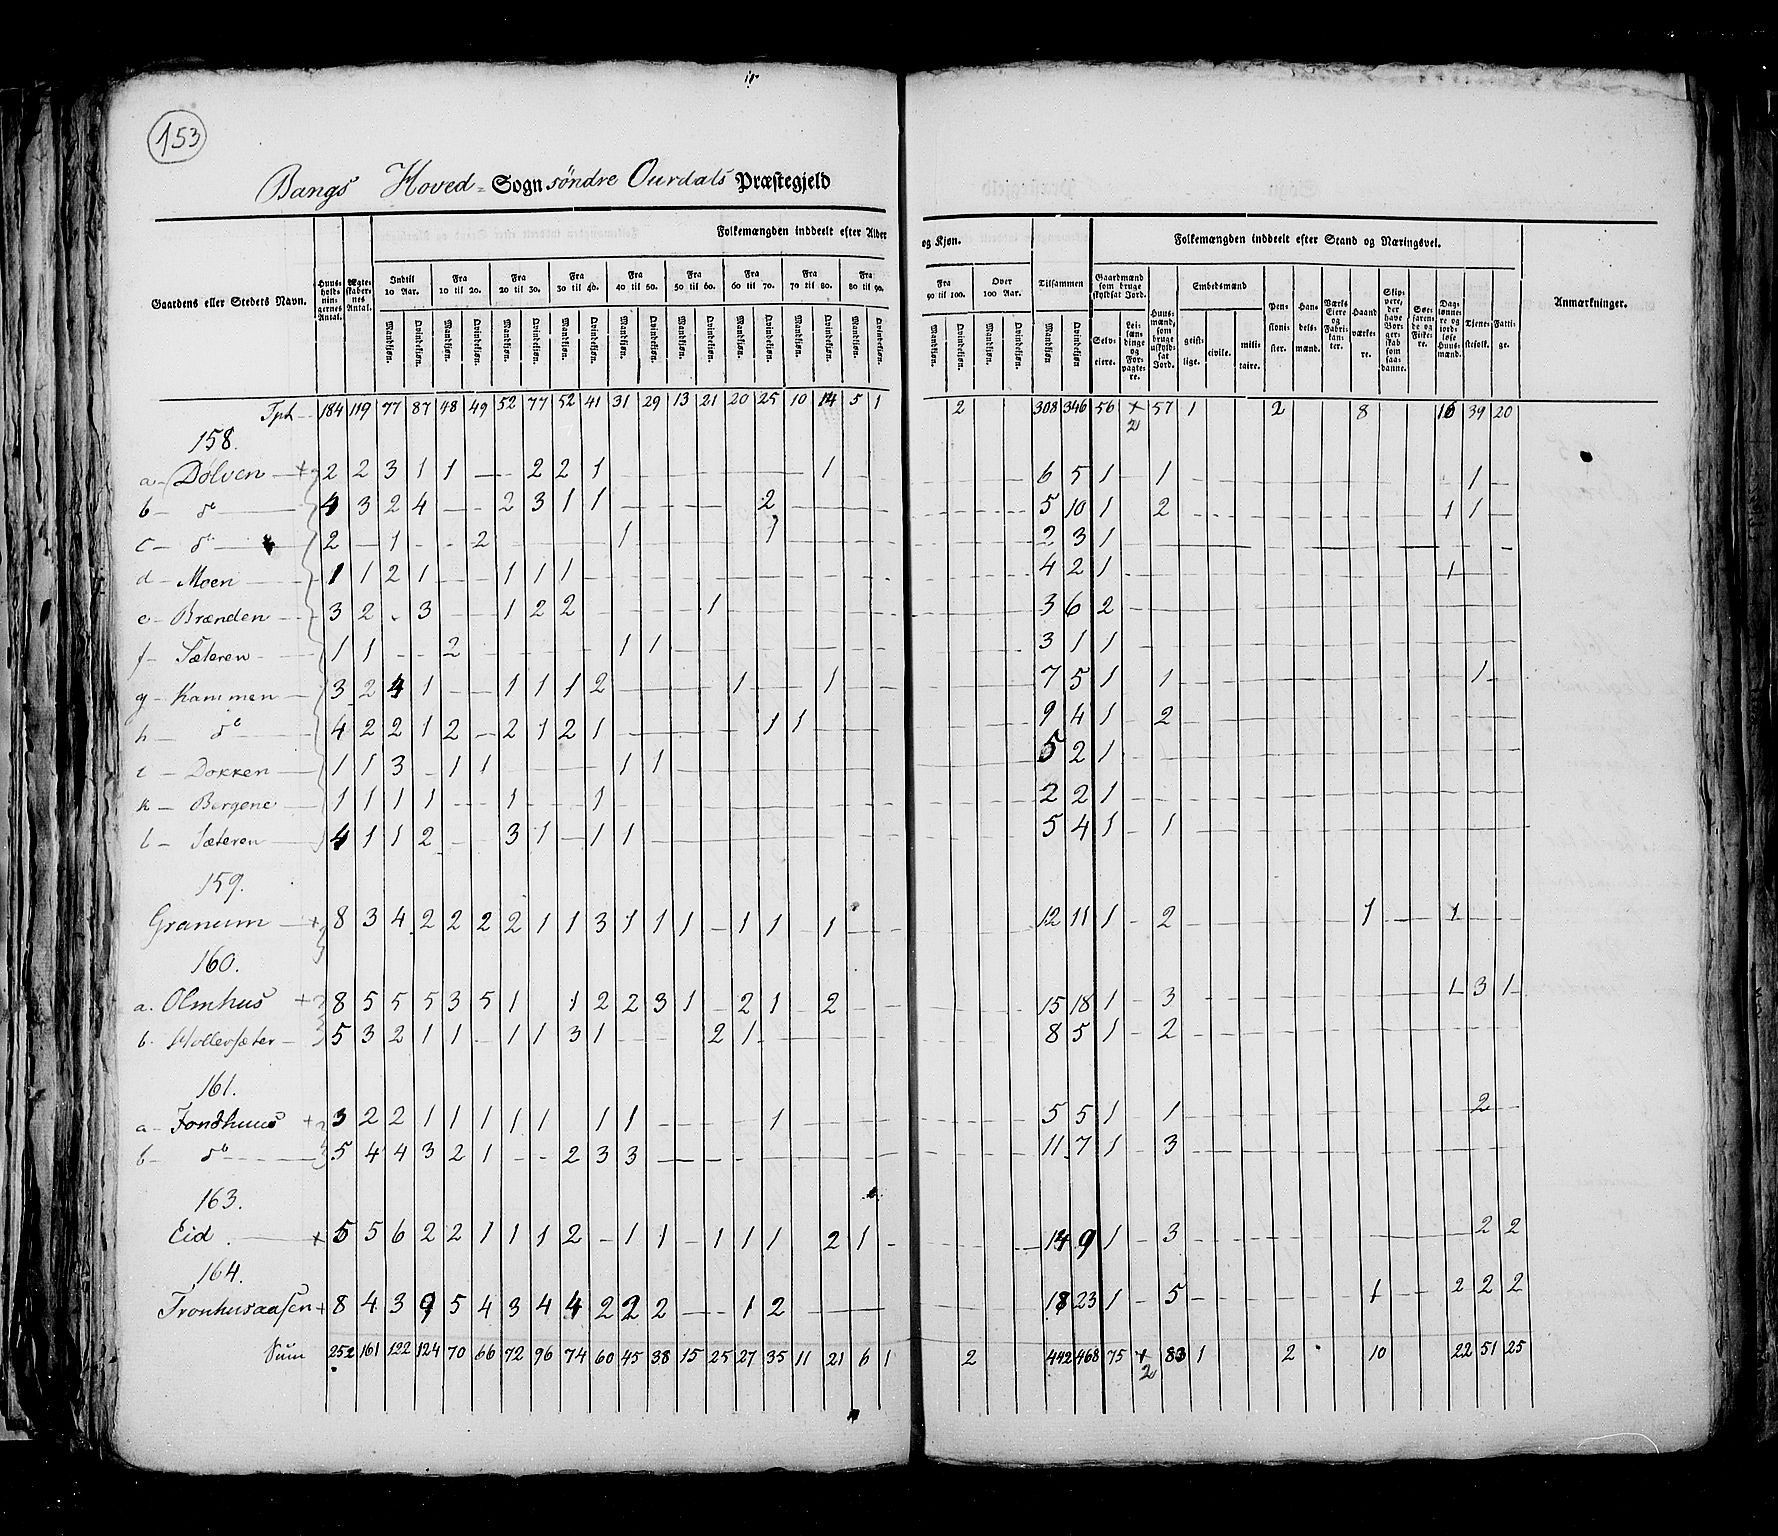 153
Bangs Hoved=Sogn söndre Ourdals Præstegjeld
Gaardens eller Stedets Navn. Huusholdningernes Antal. Ægteskabernes Antal. Folkemængden inddeelt efter Alder og Kjøn. Tilsammen Folkemængden inddeelt efter Stand og Næringsvei. Anmærkninger.
Indtil 10 Aar. Fra 10 til 20. Fra 20 til 30. Fra 30 til 40. Fra 40 til 50. Fra 50 til 60. Fra 60 til 70. Fra 70 til 80. Fra 80 til 90. Fra 90 til 100. Over 100 Aar.
Gaardmænd som bruge skyldsat Jord. Selveiere. Leilændinge og Forpagtere. Huusmænd, som bruge uskyldsat Jord. Embedsmænd geistlige. civile. militaire. Pensionister. Handelsmænd. Værks Eiere og Fabrikanter. Haandværkere. Skippere, der have Borgerskab som saadanne. Søefarende og Fiskere. Daglønnere og jordeløse Huusmænd. Tjenestefolk. Fattige.
Mandkjøn. Qvindekjøn. Mandkjøn. Qvindekjøn. Mandkjøn. Qvindekjøn. Mandkjøn. Qvindekjøn. Mandkjøn. Qvindekjøn. Mandkjøn. Qvindekjøn. Mandkjøn. Qvindekjøn. Mandkjøn. Qvindekjøn. Mandkjøn. Qvindekjøn. Mandkjøn. Qvindekjøn. Mandkjøn. Qvindekjøn. Mandkjøn Qvindekjøn.
184 119 77 87 48 49 52 77 52 41 31 29 13 21 20 25 10 14 5 1 2 308 346 56 + 2 57 1 2 8 16 39 20
158.
a – Dölven – + 2 2 3 1 1 – – 2 2 1 – – – – – – – 1 6 5 1 – 1 – 1 –
b – do – 4 3 2 4 – – 2 3 1 1 – – – – – 2 – – 5 10 1 2 – 1 1 –
c – do – 2 – 1 – – 2 – – – – 1 – – – – 1 – – 2 3 1 –
d – Moen – 1 1 2 1 – – 1 1 1 – 4 2 1 – 1 –
e – Brænden – 3 2 – 3 – – 1 2 2 – – – – 1 – 3 6 2 –
f – Sæteren – 1 1 – – 2 – – – – – 1 1 – 3 1 1 –
g – Kammen – 3 2 4 1 – – 1 1 1 2 – – – – 1 – – 1 – 7 5 1 – 1 – 1 –
h – do – 4 2 2 1 2 – 2 1 2 1 – – – – – 1 1 – 9 4 1 – 2 –
i – Dokken – 1 1 3 – 1 1 – – – – 1 1 – 5 2 1 –
k – Bergene – 1 1 1 1 – – 1 – – 1 – 2 2 1 –
l – Sæteren – 4 1 1 2 – – 3 1 – 1 1 – 5 4 1 – 1 –
159.
Granum – + 8 3 4 2 2 2 2 1 1 3 1 1 1 – 1 1 – 1 – 12 11 1 – 2 – 1 – 1 –
160.
a. Olmhus + 8 5 5 5 3 5 1 1 2 2 3 1 – 2 1 – 2 – 15 18 1 – 3 – 1 3 1
b. Hollersæter – 5 3 2 1 1 – 1 1 3 1 – – – 2 1 – 8 5 1 – 2 –
161.
a – Fondhuus + 3 2 2 1 1 1 1 1 – 1 1 – – – – 1 – 5 5 1 – 1 – 2 –
b – do – 5 4 4 3 2 1 – – 2 3 3 – 11 7 1 – 3 –
163.
Eid – + 5 5 6 2 2 1 1 1 2 – 1 1 – 1 1 1 2 1 – 14 9 1 – 3 – 2 2
164.
Tronhusaasen + 8 4 3 9 5 4 3 4 4 2 2 2 – – 1 2 – 18 23 1 – 5 – 1 – 2 2 2
Sum 252 161 122 124 70 66 72 96 74 60 45 38 15 25 27 35 11 21 6 1 2 442 468 75 + 2 83 1 2 10 22 51 25